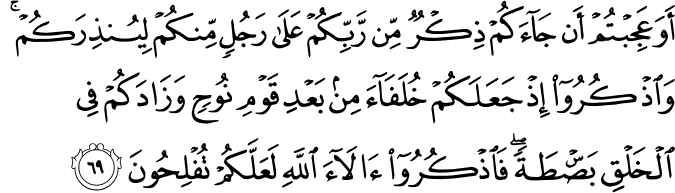 أَوَعَجِبْتُمْ أَن جَآءَكُمْ ذِكْرٌ مِّن رَّبِّكُمْ عَلَىٰ رَجُلٍ مِّنكُمْ لِيُنذِرَكُمْ ۚ
وَٱذْكُرُوٓا۟ إِذْ جَعَلَكُمْ خُلَفَآءَ مِنۢ بَعْدِ قَوْمِ نُوحٍ وَزَادَكُمْ فِى
ٱلْخَلْقِ بَصْۜطَةً ۖ فَٱذْكُرُوٓا۟ ءَالَآءَ ٱللَّهِ لَعَلَّكُمْ تُفْلِحُونَ ٦٩